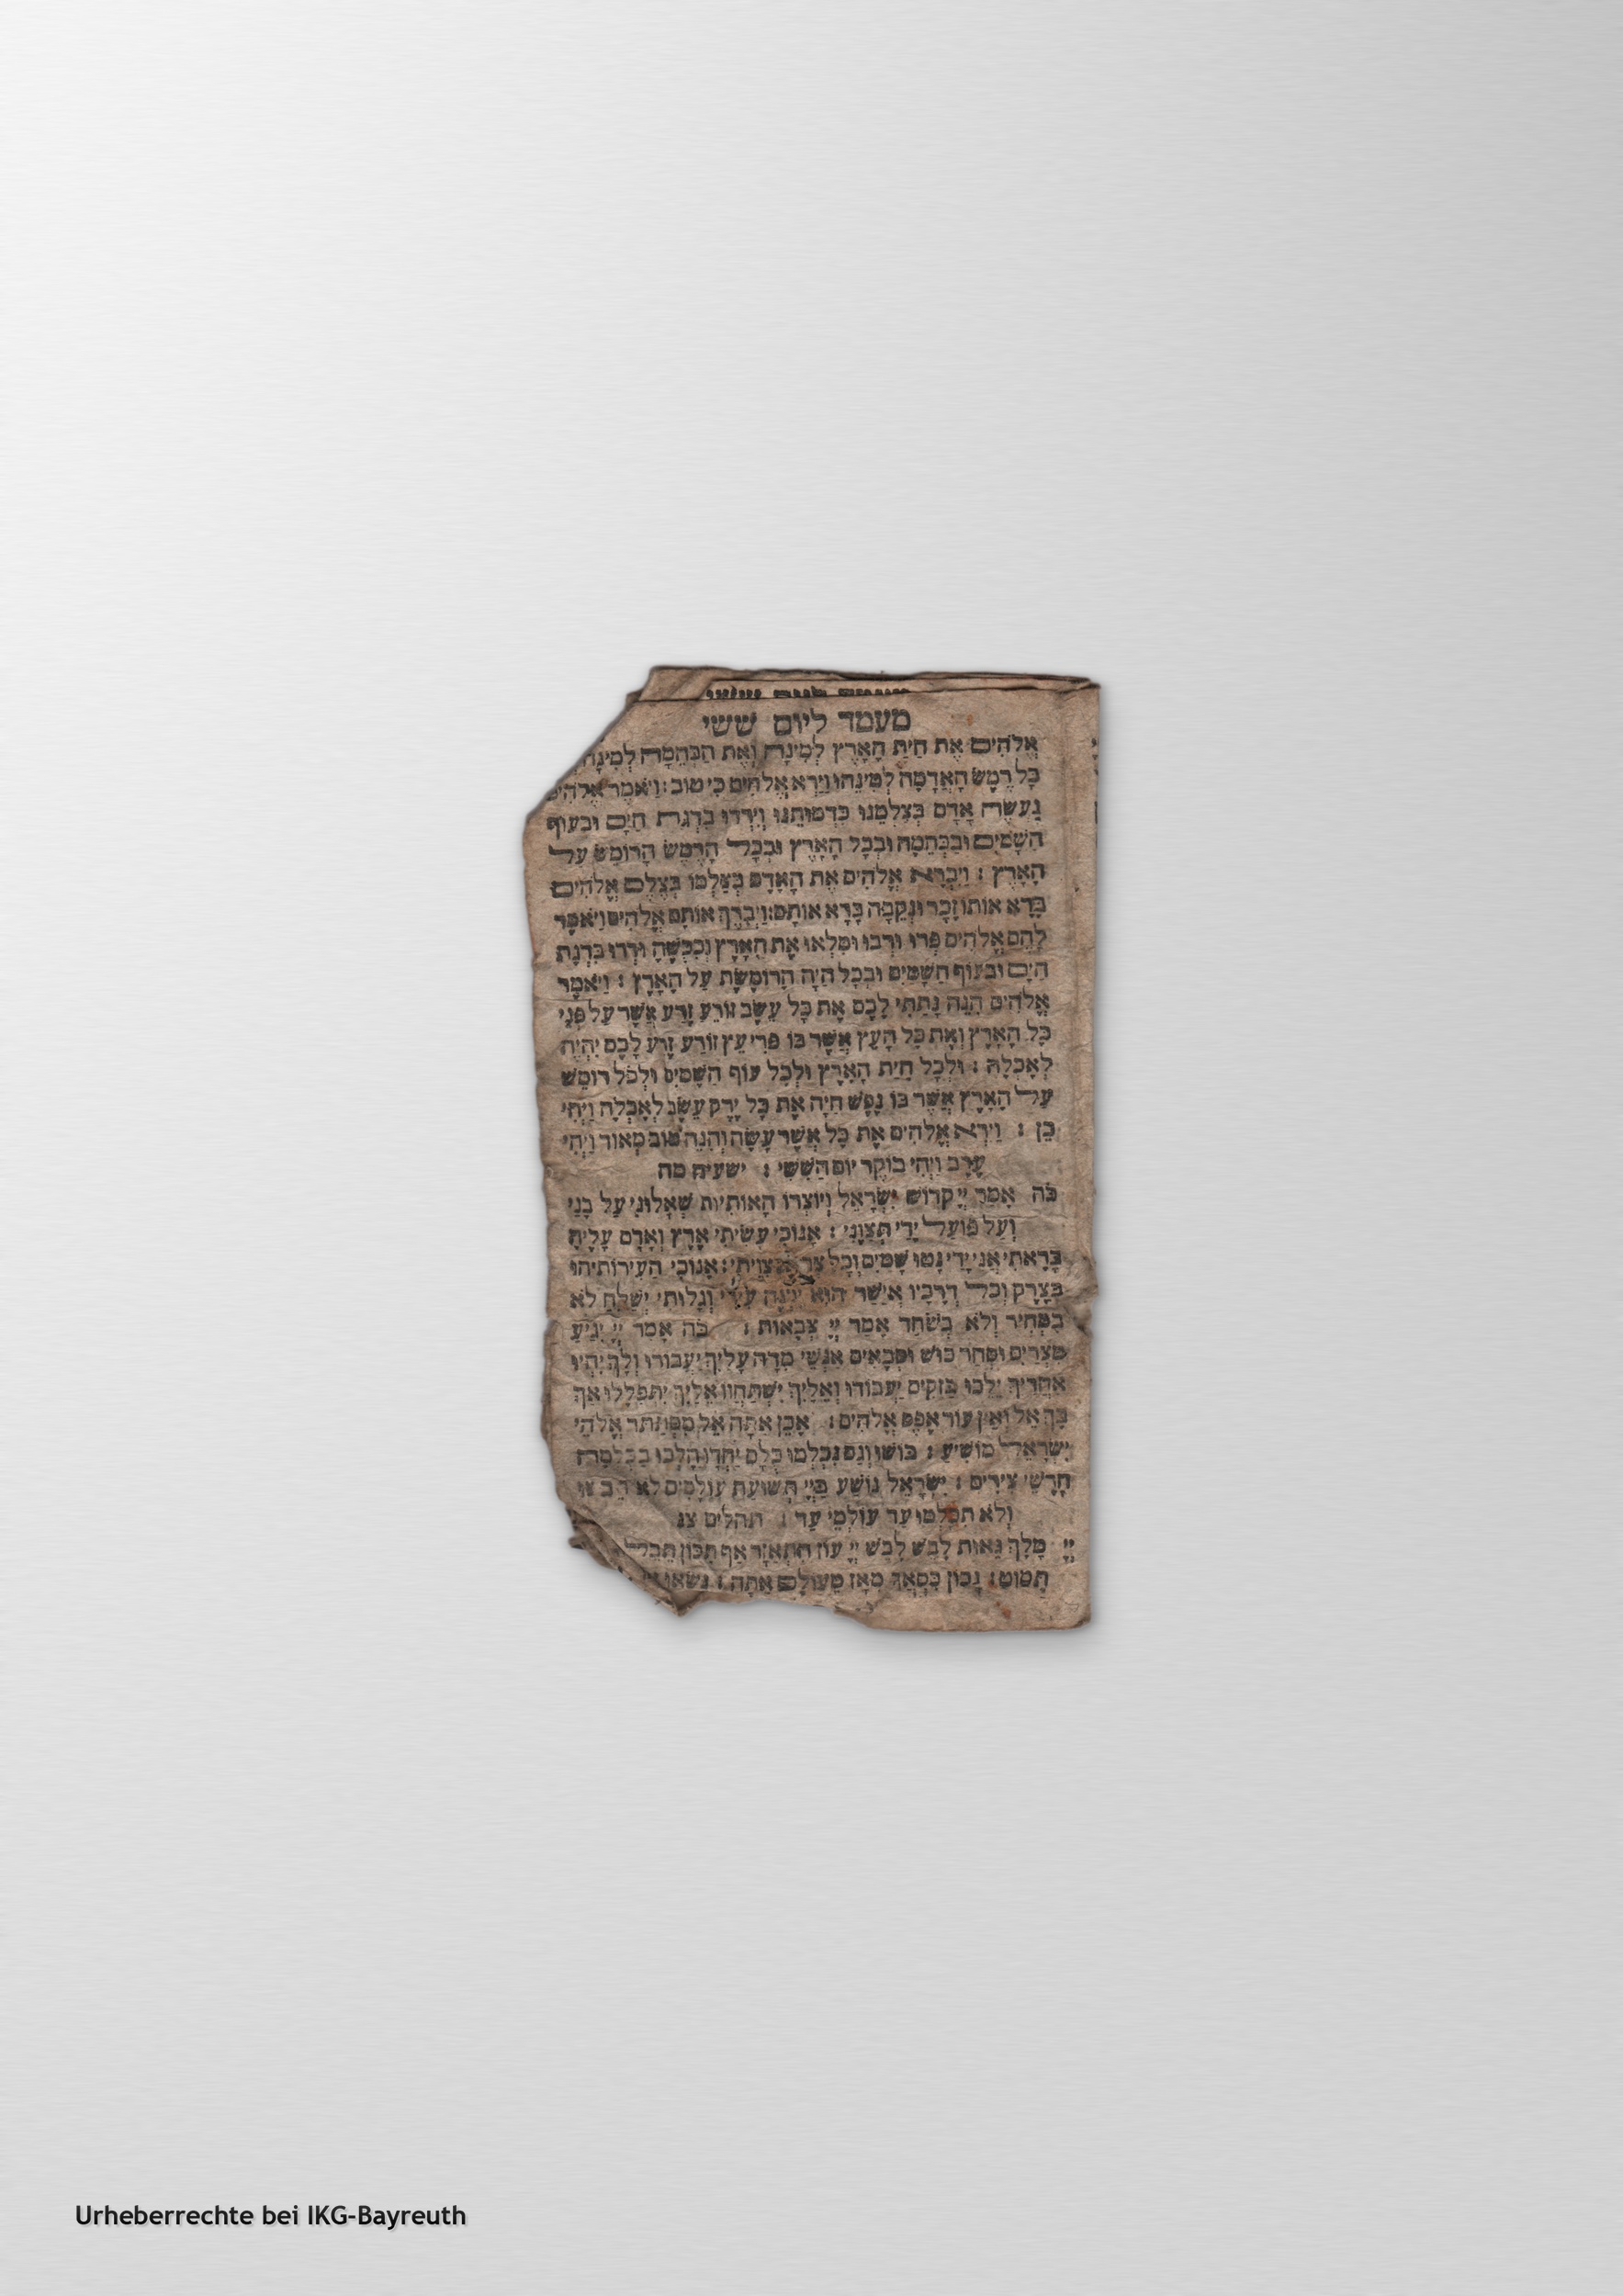 מעמד ליום ששי
אֱלֹהִים אֶת חַיַת הָאָרֶץ לְמִינָהּ וְאֶת הַבְּהֵמָה לְמִינָהּ
כָּל רֶמֶשׂ הָאֲדָמָה לְמִינֵהוּ וַיַרְא אֱלֹהִים כִּי טוֹב : וַיֹאמֶר אֱלֹהִים
נַעֲשֶׂה אָדָם בְּצַלְמֵנוּ כִּדְמוּתֵנוּ וְיִרְדּוּ בִדְגַת הַיָם וּבְעוֹף
הַשָׁמַיִם וּבַבְּהֵמָה וּבְכָל הָאָרֶץ וּבְכָל הָרֶמֶשׂ הָרוֹמֵשׂ עַל
הָאָרֶץ : וַיִבְרָא אֱלֹהִים אֶת הָאָדָם בְּצַלְמוֹ בְּצֶלֶם אֱלֹהִים
בָּרָא אוֹתוֹ זָכָר וּנְקֵבָה בָּרָא אוֹתָם : וַיְבָרֶךְ אוֹתָם אֱלֹהִים וַיֹאמֶר
לָהֶם אֱלֹהִים פְּרוּ וּרְבוּ וּמִלְאוּ אֶת הָאָרֶץ וְכִבְשֻׁהָ וּרְדוּ בִּדְגַת
הַיָם וּבְעוֹף הַשָׁמַיִם וּבְכָל חַיָה הָרוֹמֶשֶׂת עַל הָאָרֶץ : וַיֹאמֶר
אֱלֹהִים הִנֵה נָתַתִּי לָכֶם אֶת כָּל עֵשֶׂב זוֹרֵעַ זֶרַע אֲשֶׁר עַל פְּנֵי
כָל הָאָרֶץ וְאֶת כָּל הָעֵץ אֲשֶׁר בּוֹ פְּרִי עֵץ זוֹרֵעַ זָרַע לָכֶם יִהְיֶה
לְאָכְלָה : וּלְכָל חַיַת הָאָרֶץ וּלְכָל עוֹף הַשָׁמַיִם וּלְכֹל רוֹמֵשׂ
עַל הָאָרֶץ אֲשֶׁר בּוֹ נֶפֶשׁ חַיָה אֶת כָּל יֶרֶק עֵשֶׂב לְאָכְלָה וַיְהִי
כֵן : וַיַרְא אֱלֹהִים אֶת כָּל אֲשֶׁר עָשָׂה וְהִנֵה טוֹב מְאוֹד וַיְהִי
עֶרֶב וַיְהִי בוֹקֶר יוֹם הַשִׁשִׁי : ישעיה מה
כֹּה אָמַר יְיָ קְדוֹשׁ יִשְׂרָאֵל וְיוֹצְרוֹ הָאוֹתִיוֹת שְׁאָלוּנִי עַל בָּנַי
וְעַל פּוֹעַל יָדַי תְּצַוֻנִי : אָנוֹכִי עָשִׂיתִי אֶרֶץ וְאָדָם עָלֶיהָ
בָּרָאתִי אֲנִי יָדַי נָטוּ שָׁמַיִם וְכָל צְבָאָם צִוֵיתִי : אָנוֹכִי הַעִירוֹתִיהוּ
בְצֶדֶק וְכָל דְרָכָיו אֲיַשֵׁר הוּא יִבְנֶה עִירִי וְגָלוּתִי יְשַׁלֵחַ לֹא
בִמְחִיר וְלֹא בְשֹׁחַד אָמַר יְיָ צְבָאוֹת : כֹּה אָמַר יְיָ יְגִיעַ
מִצְרַיִם וּסְחַר כּוּשׁ וּסְבָאִים אַנְשֵׁי מִדָּה עָלַיִךְ יַעֲבוֹרוּ וְלָךְ יִהְיוּ
אַחֲרַיִךְ יֵלֵכוּ בַּזִקִים יַעֲבוֹרוּ וְאֵלַיִךְ יִשְׁתַּחֲווּ אֵלַיִךְ יִתְפַּלָלוּ אַךְ
בָּךְ אֵל וְאֵין עוֹד אֶפֶס אֱלֹהִים : אָכֵן אַתָּה אֵל מִסְתַּתֵּר אֱלֹהֵי
יִשְׂרָאֵל מוֹשִׁיעַ : בּוֹשׁוּ וְגַם נִכְלְמוּ כֻּלָם יַחְדָו הָלְכוּ בַכְּלִמָה
חָרָשֵׁי צִירִים : יִשְׂרָאֵל נוֹשַׁע בַּיְיָ תְּשׁוּעַת עוֹלָמִים לֹא תֵבֹשׁוּ
וְלֹא תִכָּלְמוּ עַד עוֹלְמֵי עַד : תהלים צג
יְיָ מָלָךְ גֵאוּת לָבֵשׁ לָבֵשׁ יְיָ עוֹז הִתְאַזָר אַף תִּכּוֹן תֵּבֵל
תִּמוֹט : נָכוֹן כִּסְאֲךָ מֵאָז מֵעוֹלָם אַתָּה : נָשְׂאוּ
Urheberrechte bei IKG-Bayreuth